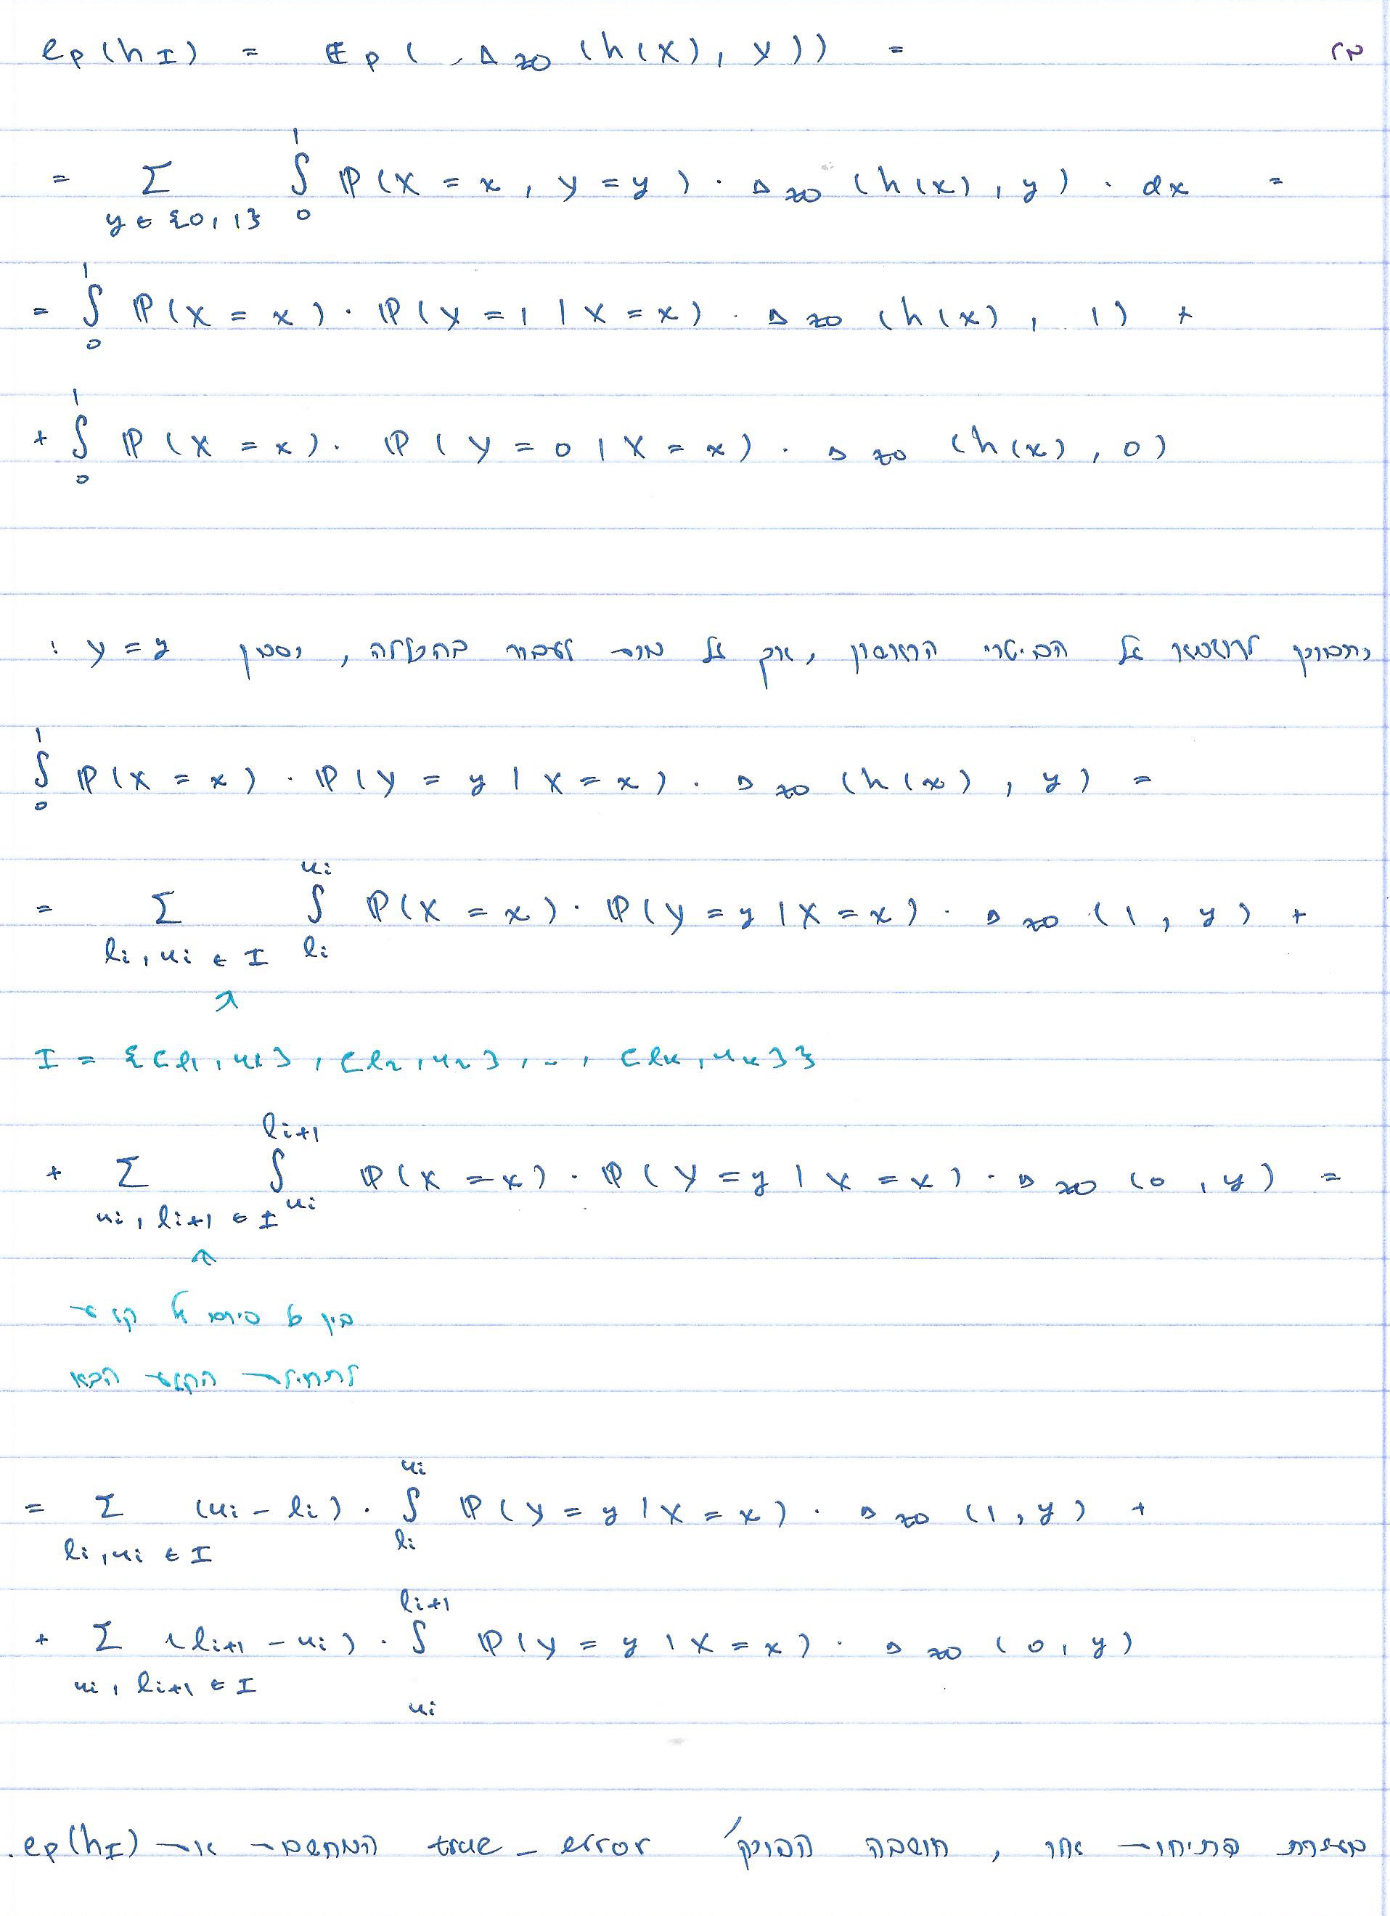 e_P(h_I) = 𝔼_P(Δ_zo(h(X), Y)) =
= Σ_{y∈{0,1}} ∫_0^1 ℙ(X = x, Y = y) · Δ_zo(h(x), y) · dx =
= ∫_0^1 ℙ(X = x) · ℙ(Y = 1 | X = x) · Δ_zo(h(x), 1) +
+ ∫_0^1 ℙ(X = x) · ℙ(Y = 0 | X = x) · Δ_zo(h(x), 0)
נתבונן על הביטוי הראשון, אך על מנת לעבוד בהכללה, נסמן Y = y :
∫_0^1 ℙ(X = x) · ℙ(Y = y | X = x) · Δ_zo(h(x), y) =
= Σ_{l_i, u_i ∈ I} ∫_{l_i}^{u_i} ℙ(X = x) · ℙ(Y = y | X = x) · Δ_zo(1, y) +
↑
I = {[l_1, u_1], [l_2, u_2], ..., [l_k, u_k]}
+ Σ_{u_i, l_{i+1} ∈ I} ∫_{u_i}^{l_{i+1}} ℙ(X = x) · ℙ(Y = y | X = x) · Δ_zo(0, y) =
↑
בין כל סיום של קטע
לתחילת הקטע הבא
= Σ_{l_i, u_i ∈ I} (u_i - l_i) · ∫_{l_i}^{u_i} ℙ(Y = y | X = x) · Δ_zo(1, y) +
+ Σ_{u_i, l_{i+1} ∈ I} (l_{i+1} - u_i) · ∫_{u_i}^{l_{i+1}} ℙ(Y = y | X = x) · Δ_zo(0, y)
בעזרת פתיחות אלו, חושבה הפונק' true_error המחשבת את e_P(h_I).